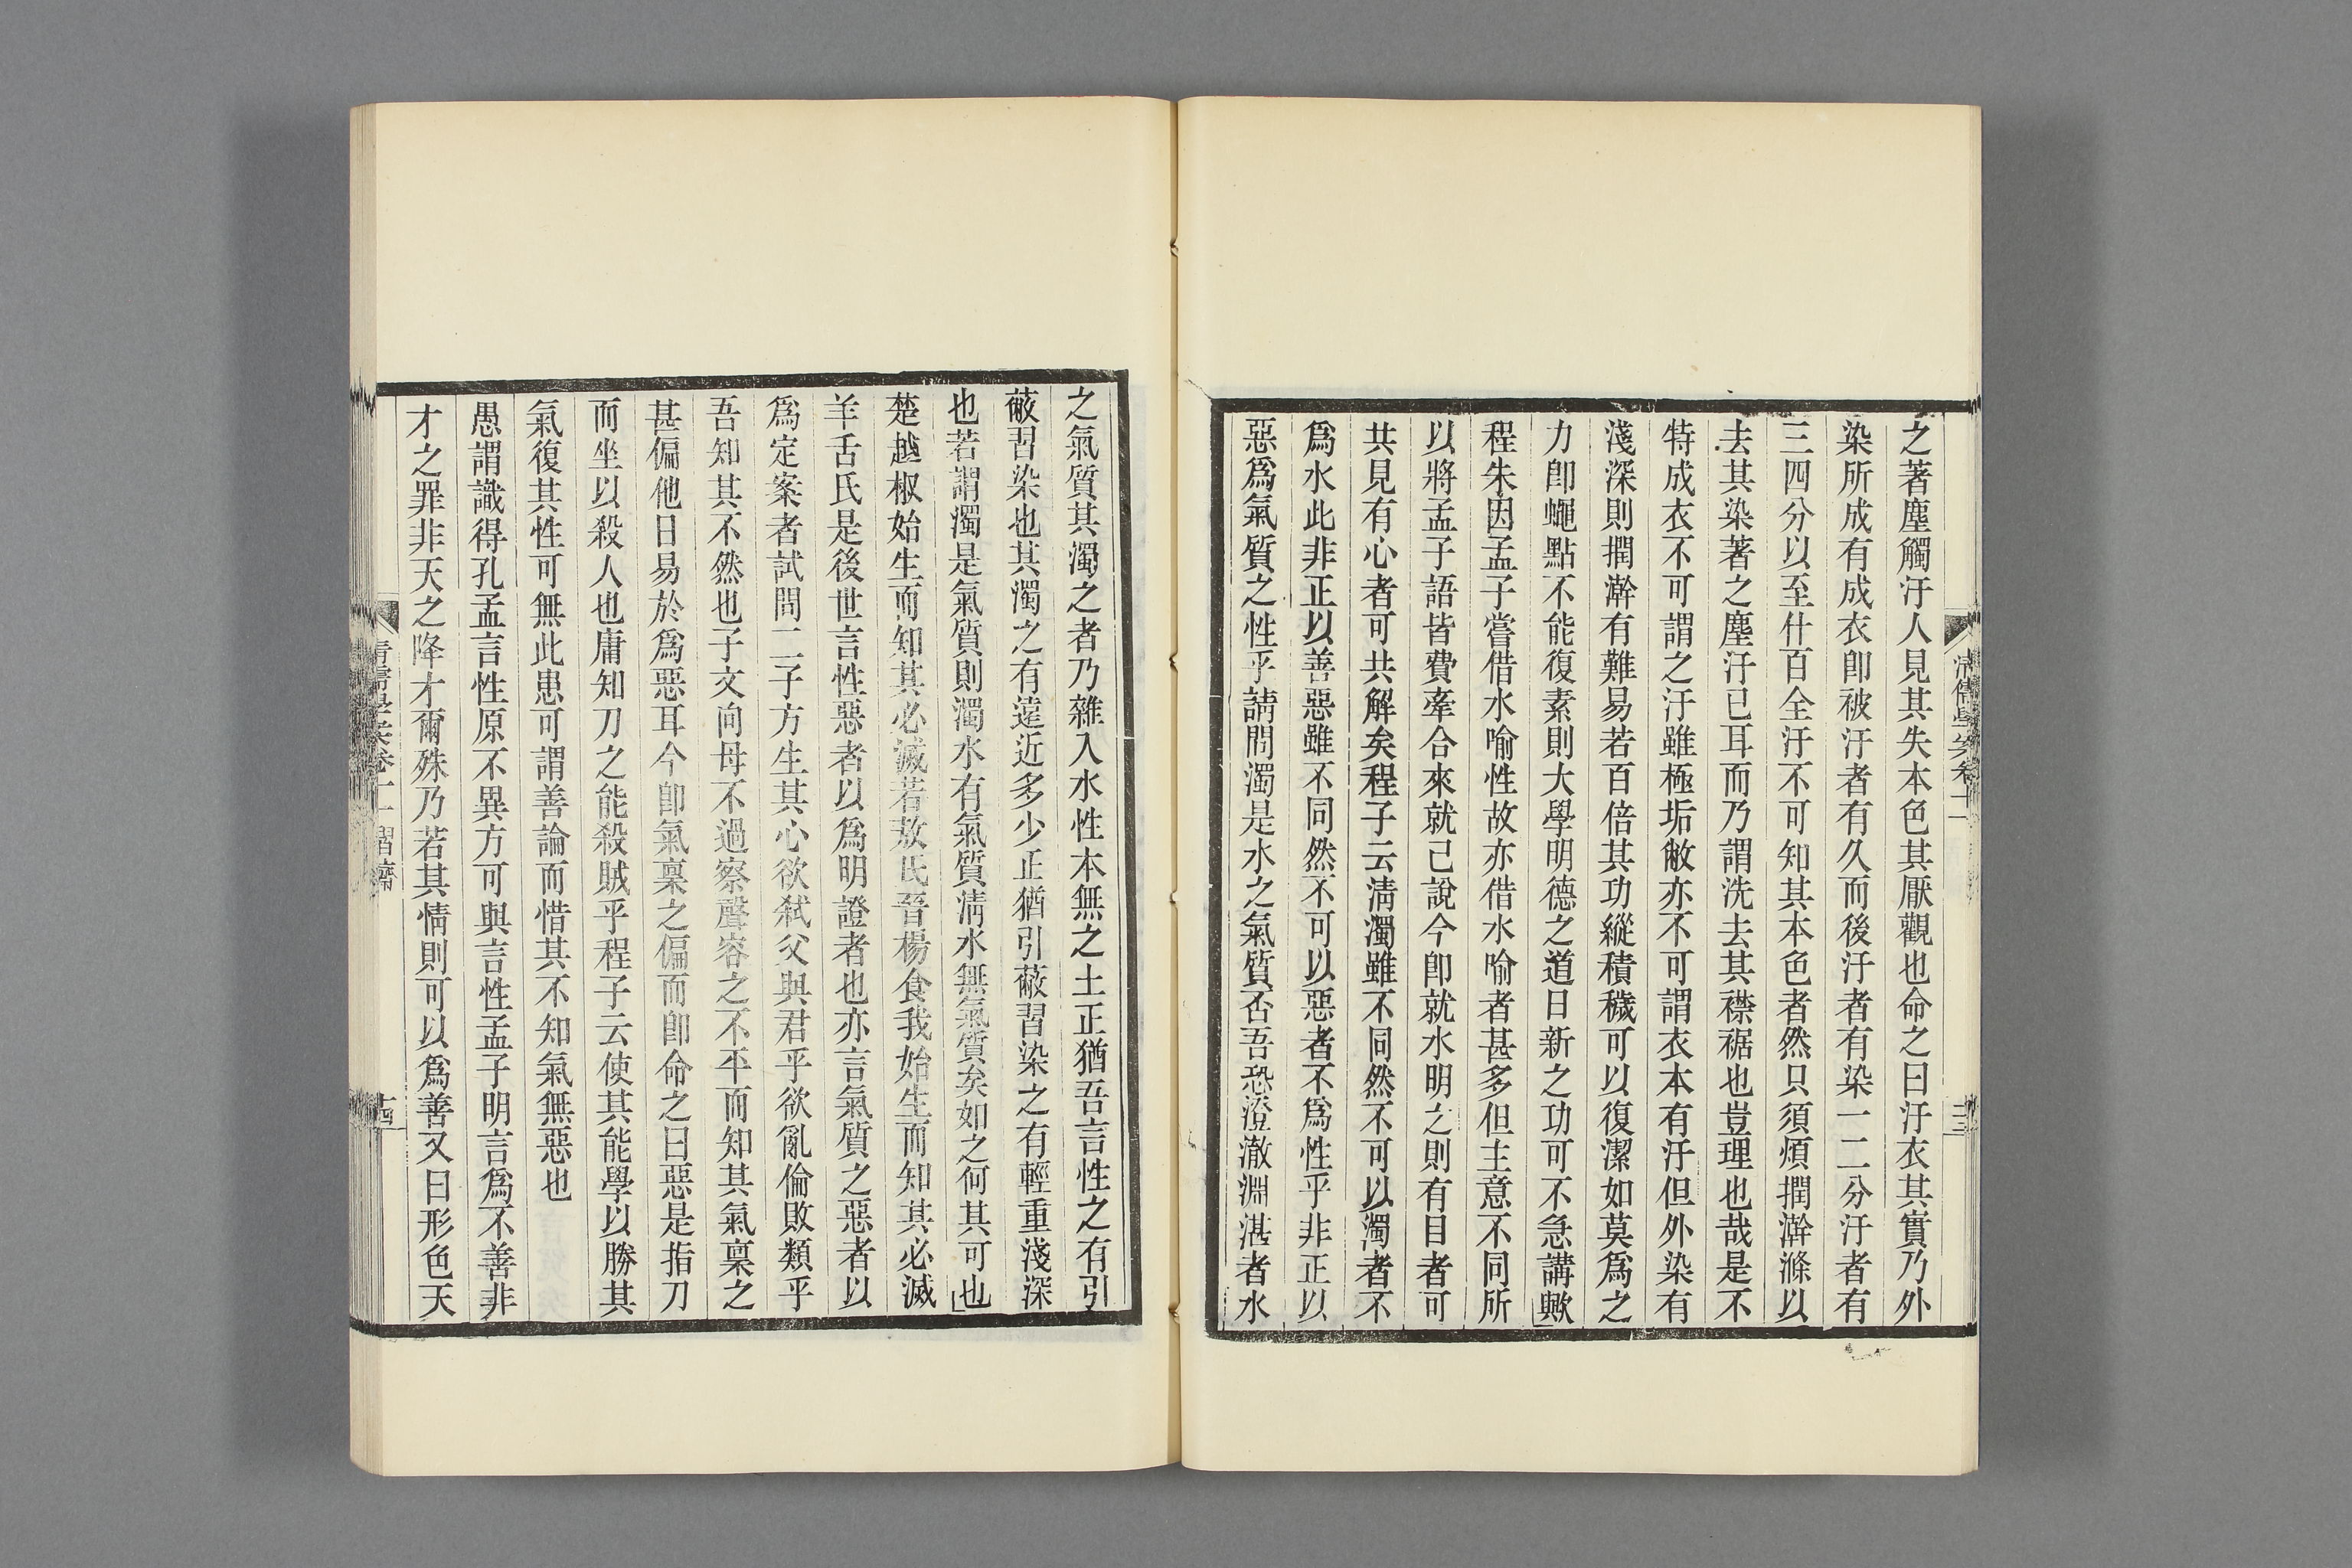 之著塵觸汙人見其失本色其厭觀也命之曰汙衣其實乃外
染所成有成衣卽被汙者有久而後汙者有染一二分汙者有
三四分以至什百全汙不可知其本色者然只須煩撋澣滌以
去其染著之塵汙已耳而乃謂洗去其襟裾也豈理也哉是不
特成衣不可謂之汙雖極垢敝亦不可謂衣本有汙但外染有
淺深則撋澣有難易若百倍其功縱積穢可以復潔如莫爲之
力卽蠅點不能復素則大學明德之道日新之功可不急講歟
程朱因孟子嘗借水喻性故亦借水喻者甚多但主意不同所
以將孟子語皆費牽合來就己說今卽就水明之則有目者可
共見有心者可共解矣程子云淸濁雖不同然不可以濁者不
爲水此非正以善惡雖不同然不可以惡者不爲性乎非正以
惡爲氣質之性乎請問濁是水之氣質否吾恐澄澈淵湛者水
清儒學案卷十一
十三
之氣質其濁之者乃雜入水性本無之土正猶吾言性之有引
蔽習染也其濁之有遠近多少正猶引蔽習染之有輕重淺深
也若謂濁是氣質則濁水有氣質淸水無氣質矣如之何其可也
楚越椒始生而知其必滅若敖氏晉楊食我始生而知其必滅
羊舌氏是後世言性惡者以爲明證者也亦言氣質之惡者以
爲定案者試問二子方生其心欲弒父與君乎欲亂倫敗類乎
吾知其不然也子文向母不過察聲容之不平而知其氣稟之
甚偏他日易於爲惡耳今卽氣稟之偏而卽命之曰惡是指刀
而坐以殺人也庸知刀之能殺賊乎程子云使其能學以勝其
氣復其性可無此患可謂善論而惜其不知氣無惡也
愚謂識得孔孟言性原不異方可與言性孟子明言爲不善非
才之罪非天之降才爾殊乃若其情則可以爲善又曰形色天
清儒學案卷十一 習齋
十四